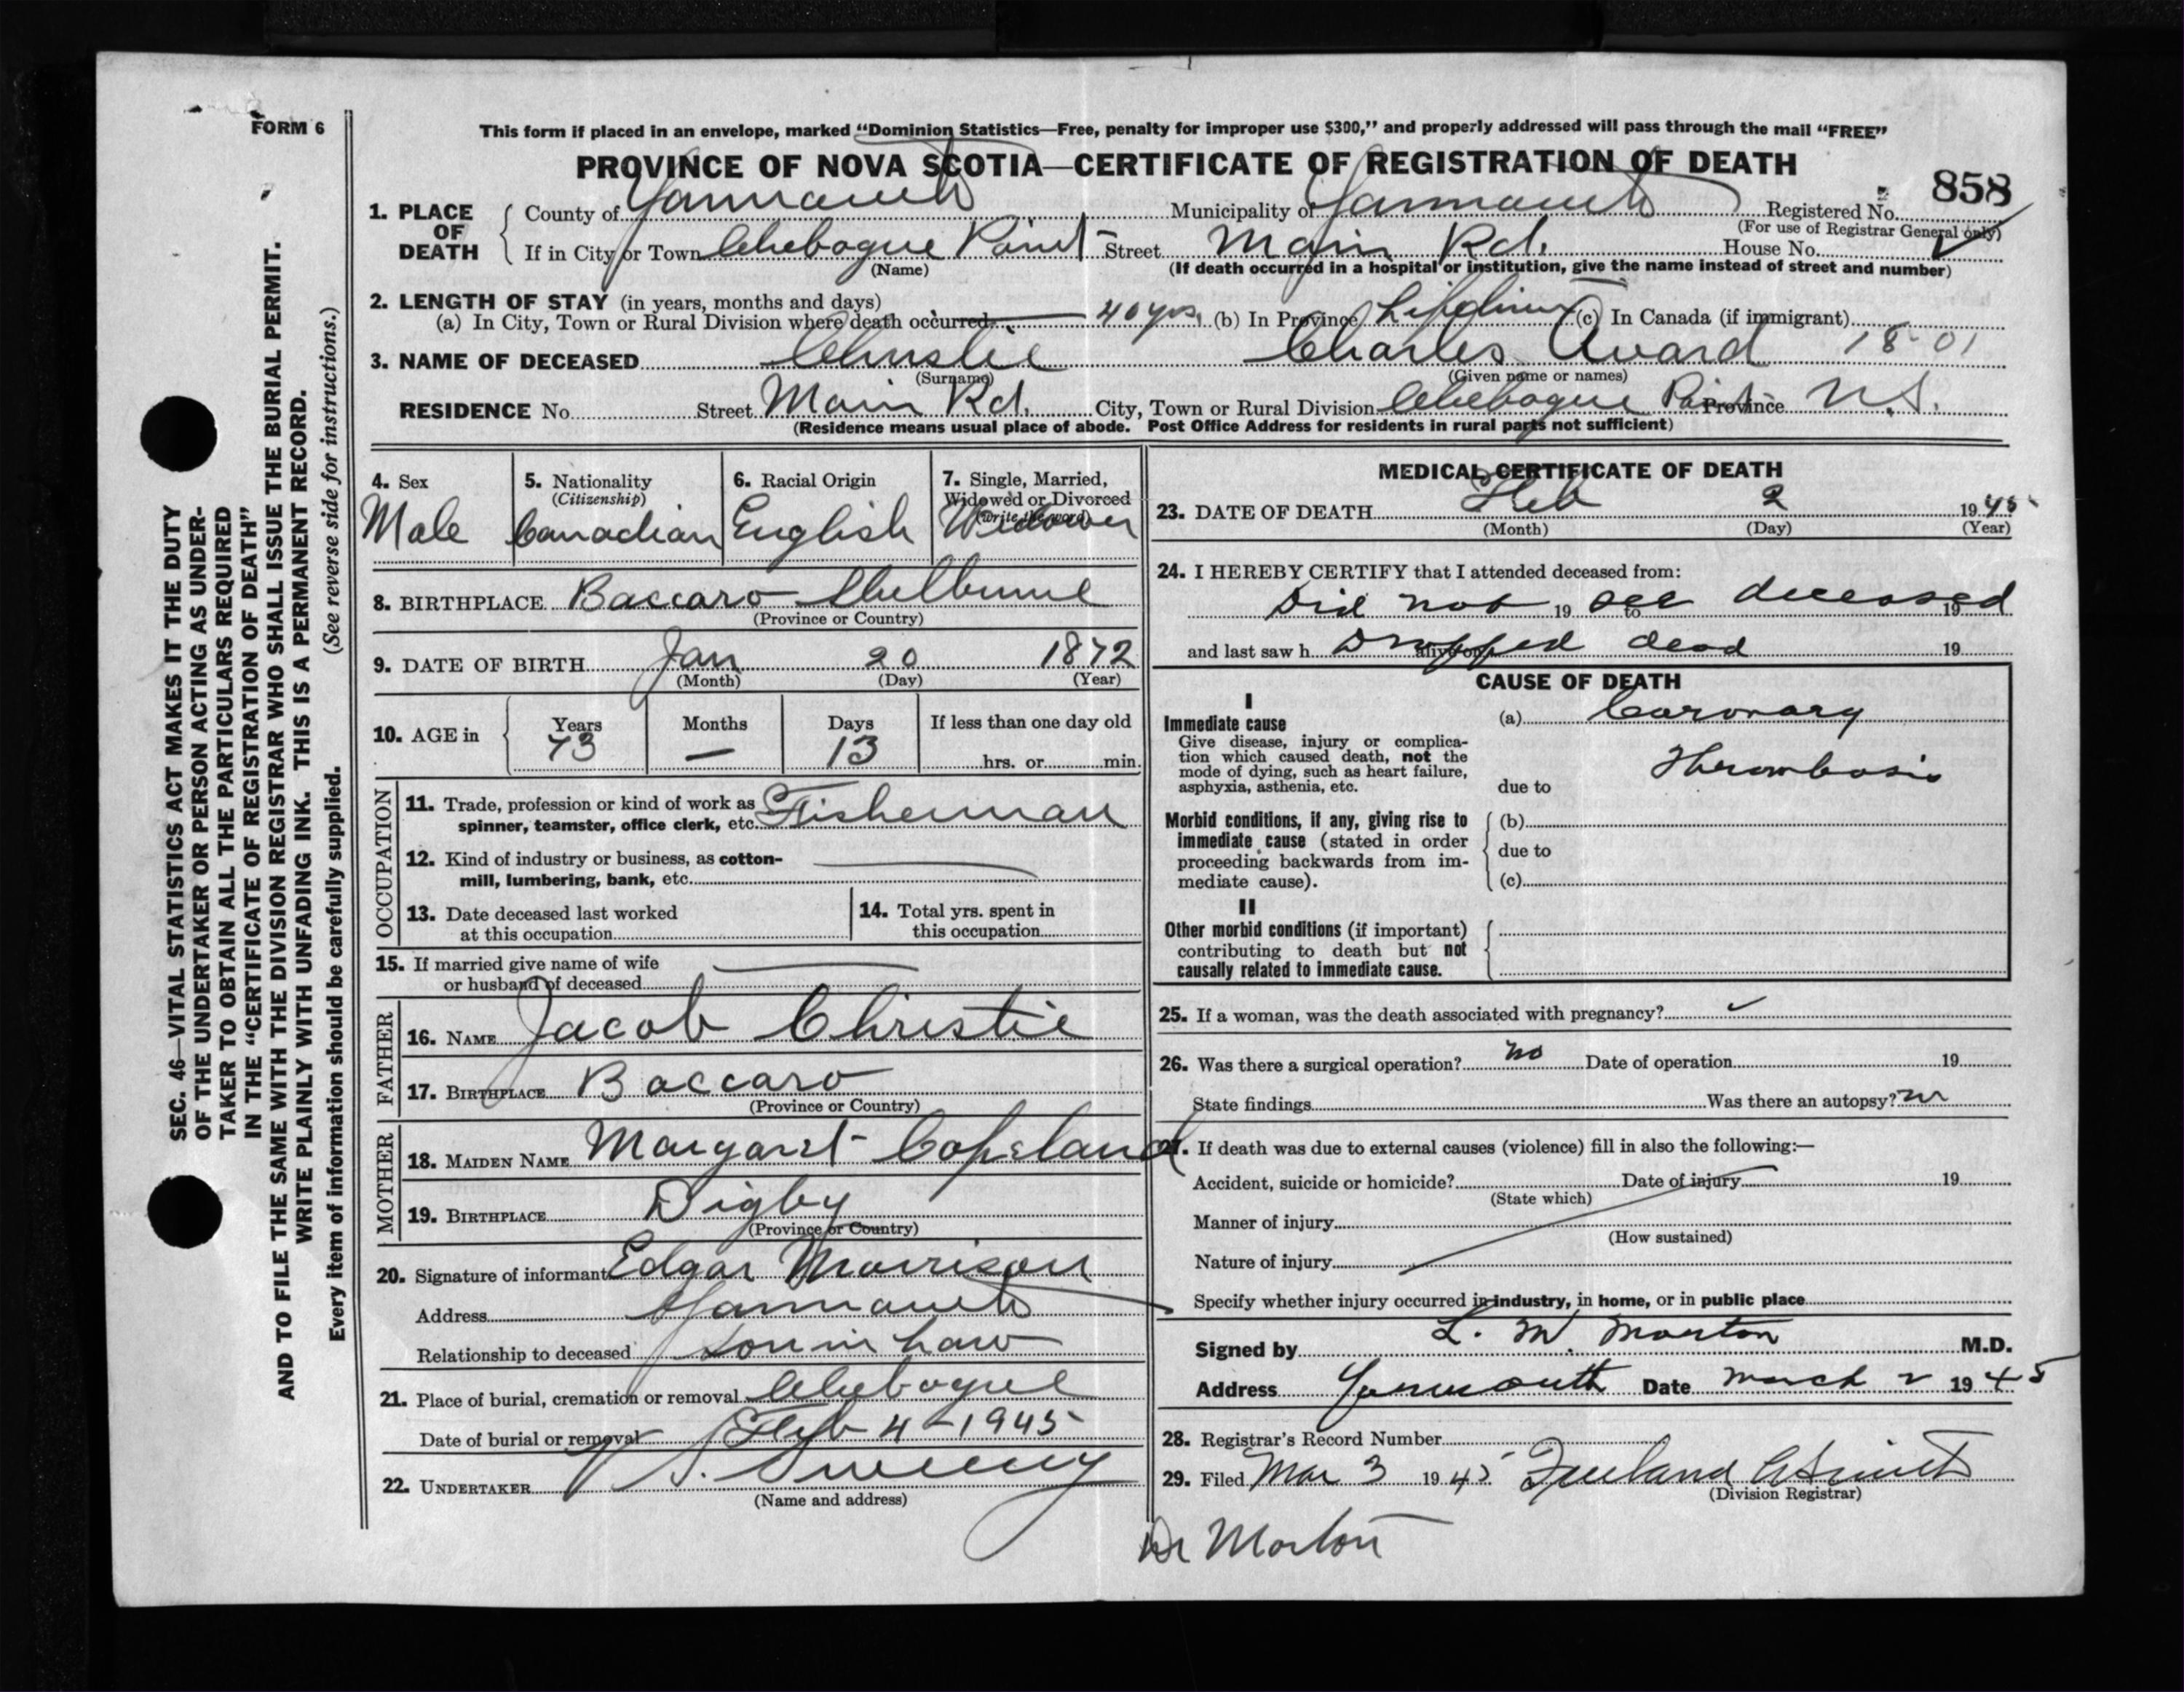 FORM 6
This form if placed in an envelope, marked "Dominion Statistics—Free, penalty for improper use $300," and properly addressed will pass through the mail "FREE"
PROVINCE OF NOVA SCOTIA—CERTIFICATE OF REGISTRATION OF DEATH
858
1. PLACE OF DEATH
County of Yarmouth Municipality of Yarmouth Registered No.
(For use of Registrar General only)
If in City or Town Chebogue Point Street Main Rd. House No.
(Name) (If death occurred in a hospital or institution, give the name instead of street and number)
2. LENGTH OF STAY (in years, months and days)
(a) In City, Town or Rural Division where death occurred 40 yrs. (b) In Province Lifetime (c) In Canada (if immigrant)
3. NAME OF DECEASED Christie Charles Avard 18-01
(Surname) (Given name or names)
RESIDENCE No. Street Main Rd. City, Town or Rural Division Chebogue Point Province N.S.
(Residence means usual place of abode. Post Office Address for residents in rural parts not sufficient)
4. Sex
Male
5. Nationality
(Citizenship)
Canadian
6. Racial Origin
English
7. Single, Married,
Widowed or Divorced
(write the word)
Widower
8. BIRTHPLACE Baccaro Shelburne
(Province or Country)
9. DATE OF BIRTH Jan 20 1872
(Month) (Day) (Year)
10. AGE in
Years Months Days If less than one day old
73 — 13 hrs. or min.
OCCUPATION
11. Trade, profession or kind of work as
spinner, teamster, office clerk, etc. Fisherman
12. Kind of industry or business, as cotton-
mill, lumbering, bank, etc.
13. Date deceased last worked
at this occupation
14. Total yrs. spent in
this occupation
15. If married give name of wife
or husband of deceased
FATHER
16. NAME Jacob Christie
17. BIRTHPLACE Baccaro
(Province or Country)
MOTHER
18. MAIDEN NAME Margaret Copeland
19. BIRTHPLACE Digby
(Province or Country)
20. Signature of informant Edgar Morrison
Address Yarmouth
Relationship to deceased son in Law
21. Place of burial, cremation or removal Chebogue
Date of burial or removal Feb 4-1945
22. UNDERTAKER V S. Sweeny
(Name and address)
MEDICAL CERTIFICATE OF DEATH
23. DATE OF DEATH Feb 2 1945
(Month) (Day) (Year)
24. I HEREBY CERTIFY that I attended deceased from:
Did not 19 see to deceased 19
and last saw h Dropped alive on dead 19
CAUSE OF DEATH
I
Immediate cause
Give disease, injury or complica-
tion which caused death, not the
mode of dying, such as heart failure,
asphyxia, asthenia, etc.
(a) Coronary
Thrombosis
due to
Morbid conditions, if any, giving rise to
immediate cause (stated in order
proceeding backwards from im-
mediate cause).
(b)
due to
(c)
II
Other morbid conditions (if important)
contributing to death but not
causally related to immediate cause.
25. If a woman, was the death associated with pregnancy?
26. Was there a surgical operation? no Date of operation 19
State findings Was there an autopsy? no
27. If death was due to external causes (violence) fill in also the following:—
Accident, suicide or homicide? Date of injury 19
(State which)
Manner of injury
(How sustained)
Nature of injury
Specify whether injury occurred in industry, in home, or in public place
Signed by L. M. Morton M.D.
Address Yarmouth Date March 2 1945
28. Registrar's Record Number
29. Filed Mar 3 1945
(Division Registrar)
Dr Morton
SEC. 46—VITAL STATISTICS ACT MAKES IT THE DUTY
OF THE UNDERTAKER OR PERSON ACTING AS UNDER-
TAKER TO OBTAIN ALL THE PARTICULARS REQUIRED
IN THE "CERTIFICATE OF REGISTRATION OF DEATH"
AND TO FILE THE SAME WITH THE DIVISION REGISTRAR WHO SHALL ISSUE THE BURIAL PERMIT.
WRITE PLAINLY WITH UNFADING INK. THIS IS A PERMANENT RECORD.
Every item of information should be carefully supplied. (See reverse side for instructions.)